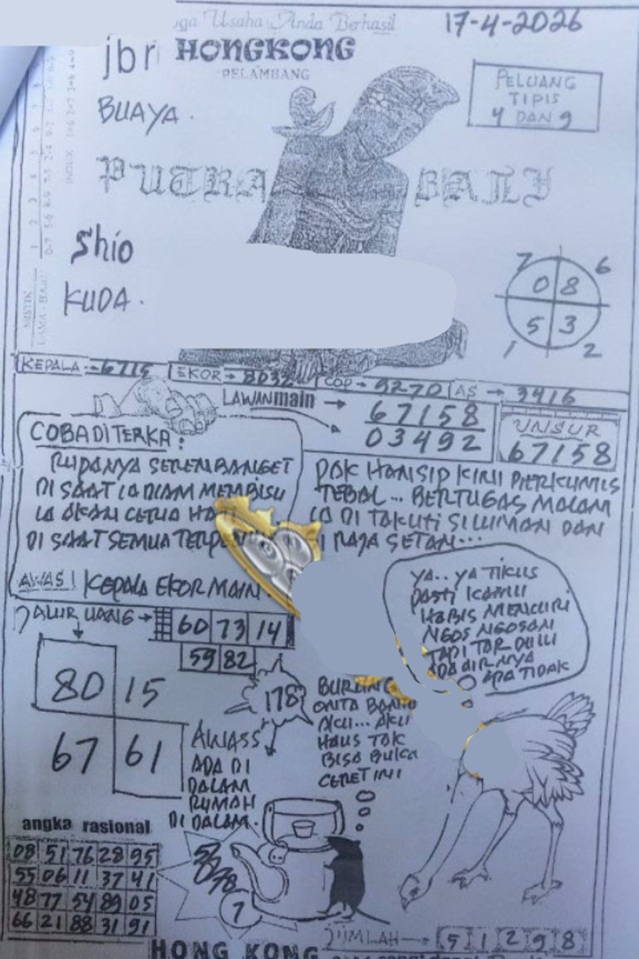 Usaha Anda Berhasil
17-4-2026
jbr HONGKONG
PELAMBANG
BUAYA.
PELUANG
TIPIS
4 DAN 9
PUTRA BALI
Shio
KUDA.
7 6
0 8
5 3
1 2
KEPALA → 6715 EKOR → 8032 COP → 9270 AS → 3416
LAWAN main →
67158
03492
UNSUR
67158
COBA DITERKA:
RUPANYA SEREM BANGET
DI SAAT IA DIAM MEMBISU
IA AKAN CERIA
DI SAAT SEMUA
AWAS! KEPALA EKOR MAIN
PAK HANSIP KINI BERKUMIS
TEBAL... BERTUGAS MALAM
IA DI TAKUTI SILUMAN DAN
RAJA SETAN...
JALUR UANG → 60 73 14
59 82
80 15
67 61
178
AWASS
ADA DI
DALAM
RUMAH
DI DALAM.
BURUNG
ONTA BANTU
AKU... AKU
HAUS TAK
BISA BUKA
CERET INI
YA.. YA TIKUS
PASTI KAMU
HABIS MENCURI
NGOS NGOSAN
TAPI TAR DULU
ADA AIRNYA
APA TIDAK
angka rasional
08 51 76 28 95
55 06 11 37 41
48 77 54 89 05
66 21 88 31 91
7
JUMLAH → 5 1 2 9 8
HONG KONG